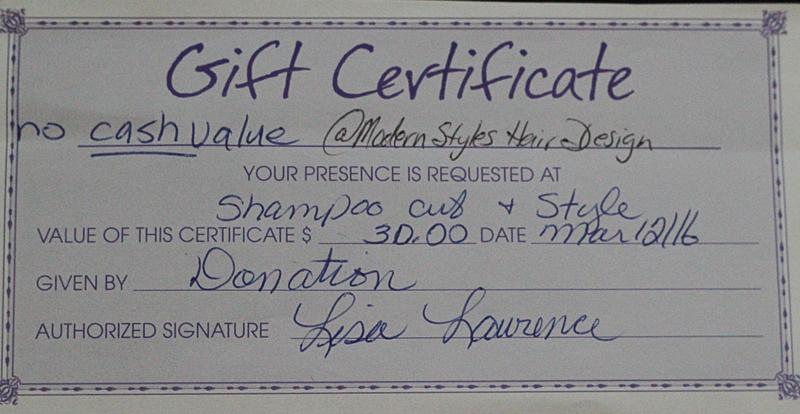 Gift Certificate
no cash value @Modern Styles Hair Design
YOUR PRESENCE IS REQUESTED AT
Shampoo cut + Style
VALUE OF THIS CERTIFICATE $ 30.00 DATE Mar 12/16
GIVEN BY Donation
AUTHORIZED SIGNATURE Lisa Lawrence